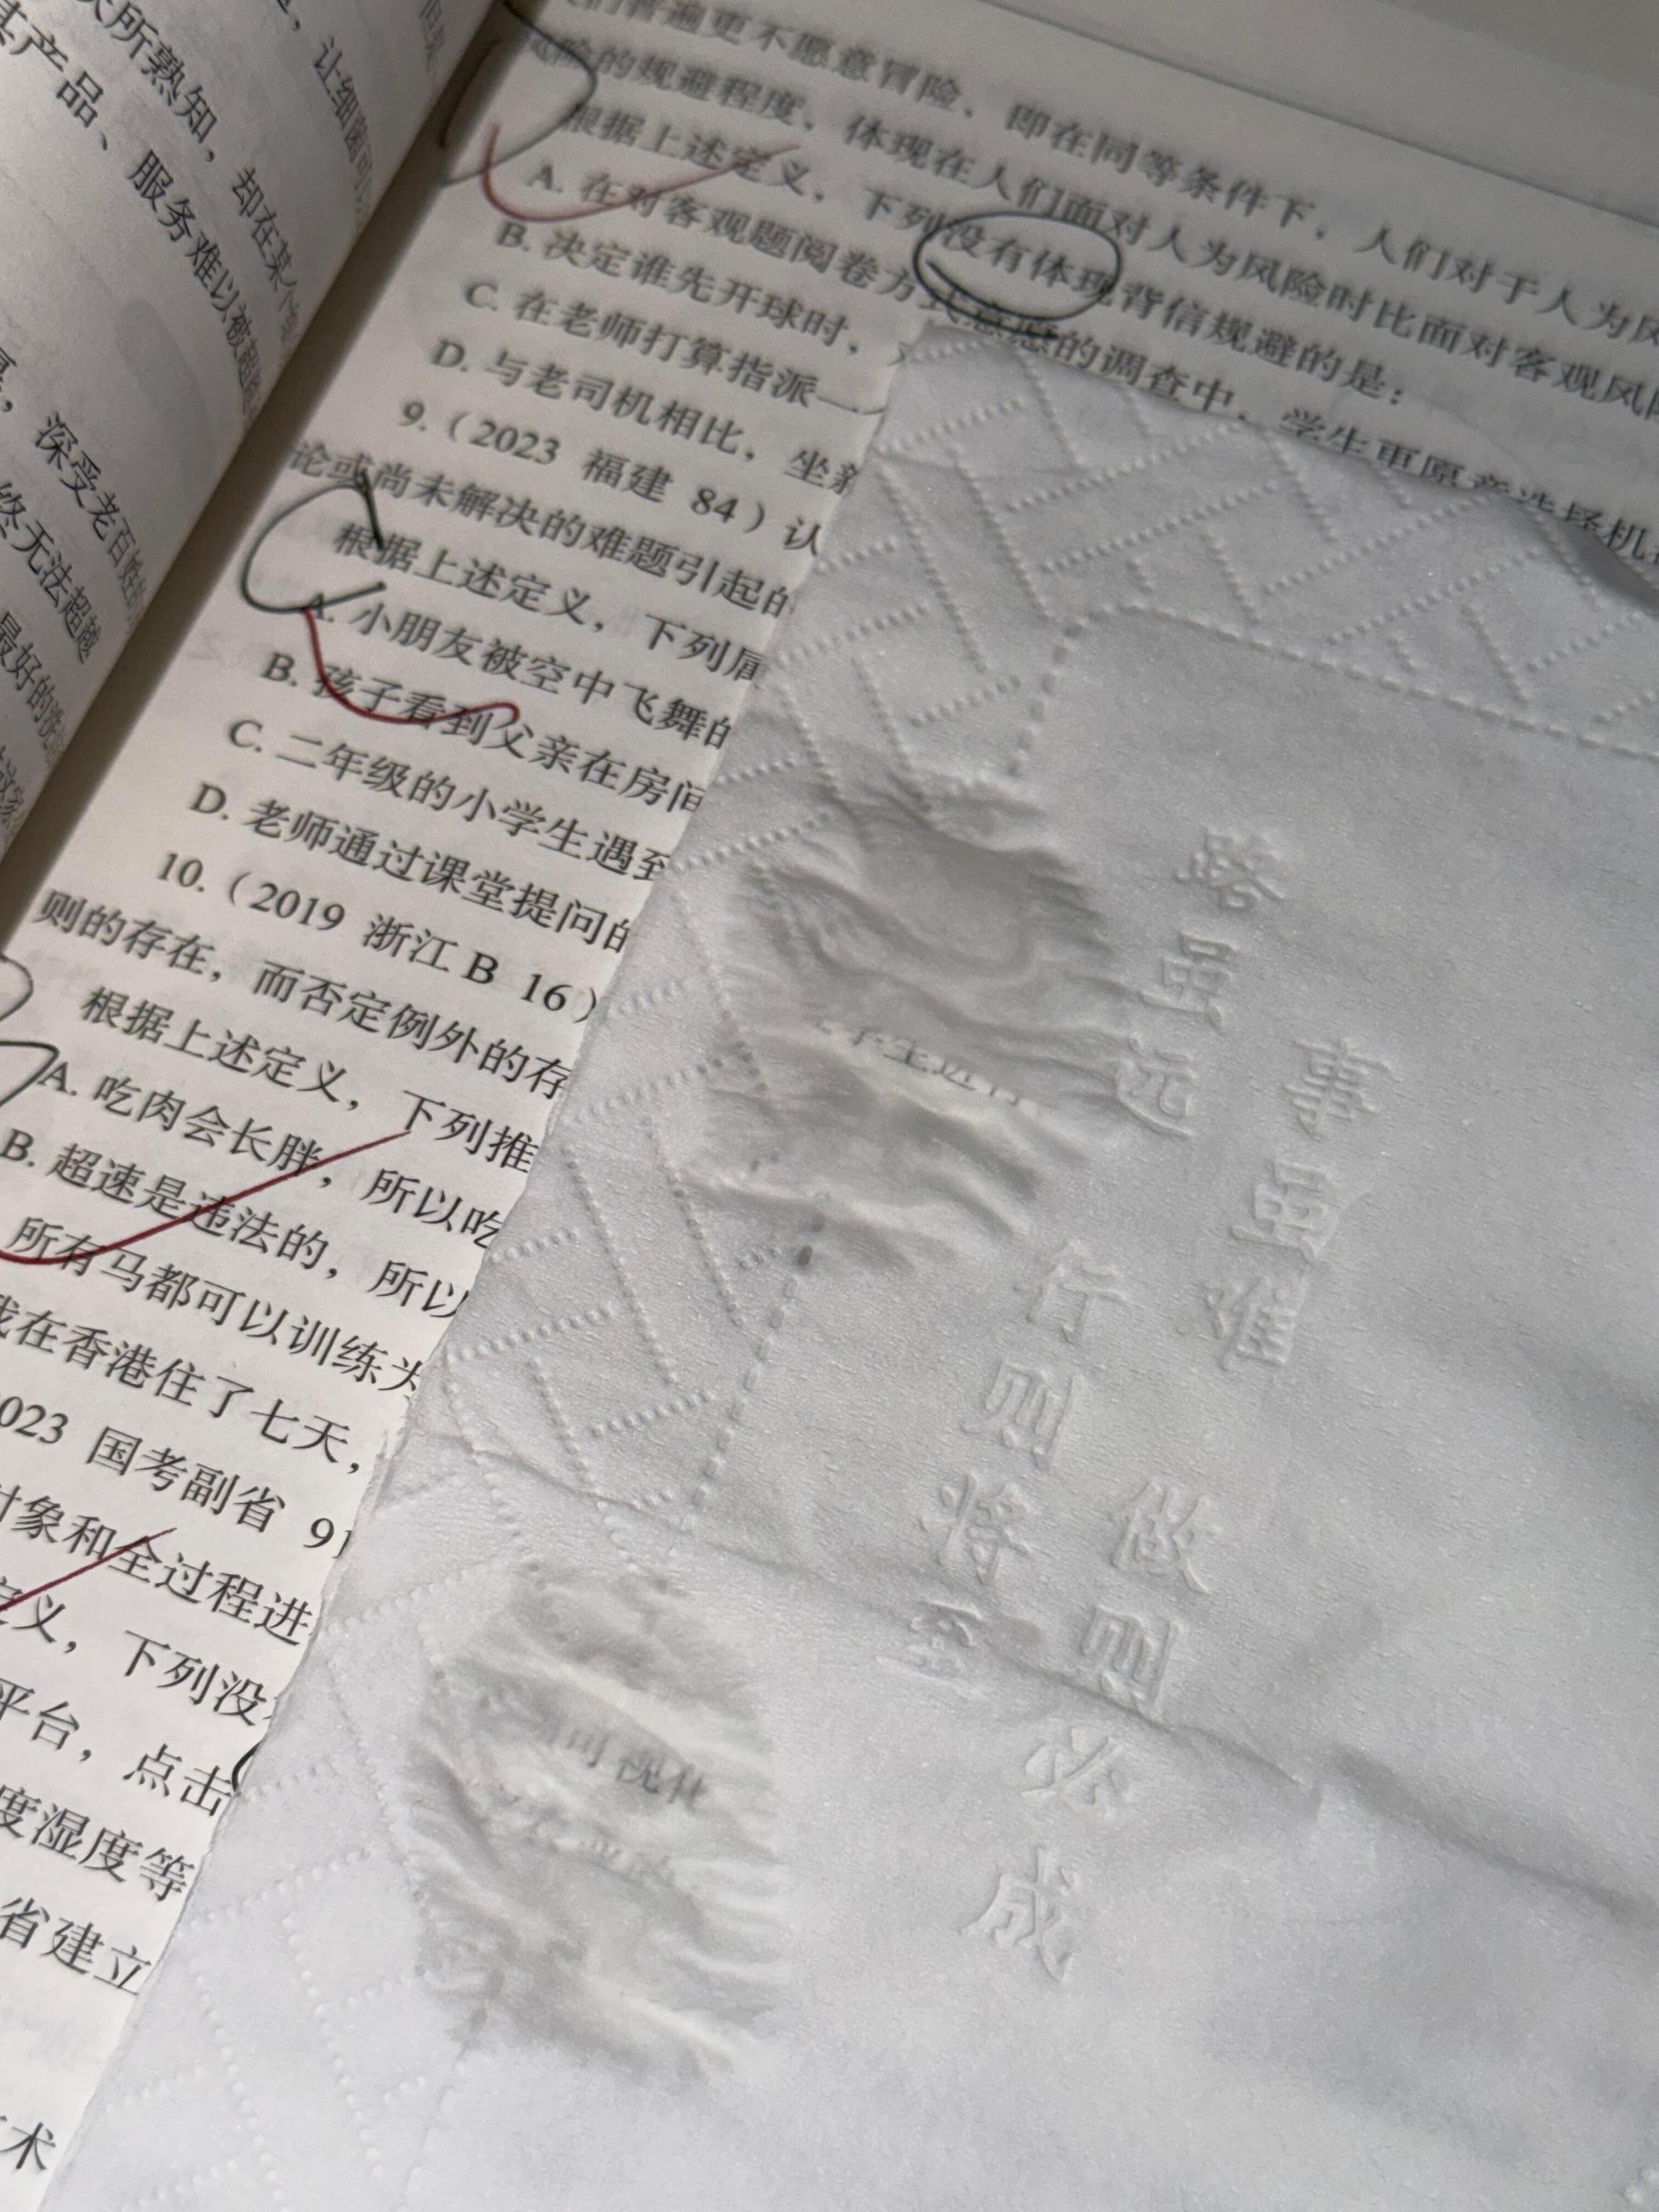 让细菌可
但是
大所熟知，却在某个
其产品、服务难以被超越
深受老百姓
终无法超越
最好的洗
们普遍更不愿意冒险，即在同等条件下，人们对于人为风
风险的规避程度，体现在人们面对人为风险时比面对客观风险
根据上述定义，下列没有体现背信规避的是：
A. 在对客观题阅卷方式意愿的调查中，学生更愿意选择机
B. 决定谁先开球时，
C. 在老师打算指派一
D. 与老司机相比，坐新
9.（2023 福建 84）认
论或尚未解决的难题引起的
根据上述定义，下列属
A. 小朋友被空中飞舞的
B. 孩子看到父亲在房间
C. 二年级的小学生遇到
D. 老师通过课堂提问的
10.（2019 浙江 B 16）
则的存在，而否定例外的存
根据上述定义，下列推
A. 吃肉会长胖，所以吃
B. 超速是违法的，所以
所有马都可以训练为
我在香港住了七天，
023 国考副省 91
对象和全过程进
定义，下列没
平台，点击
度湿度等
省建立
术
路虽远
行则将至
事虽难
做则必成
可视化